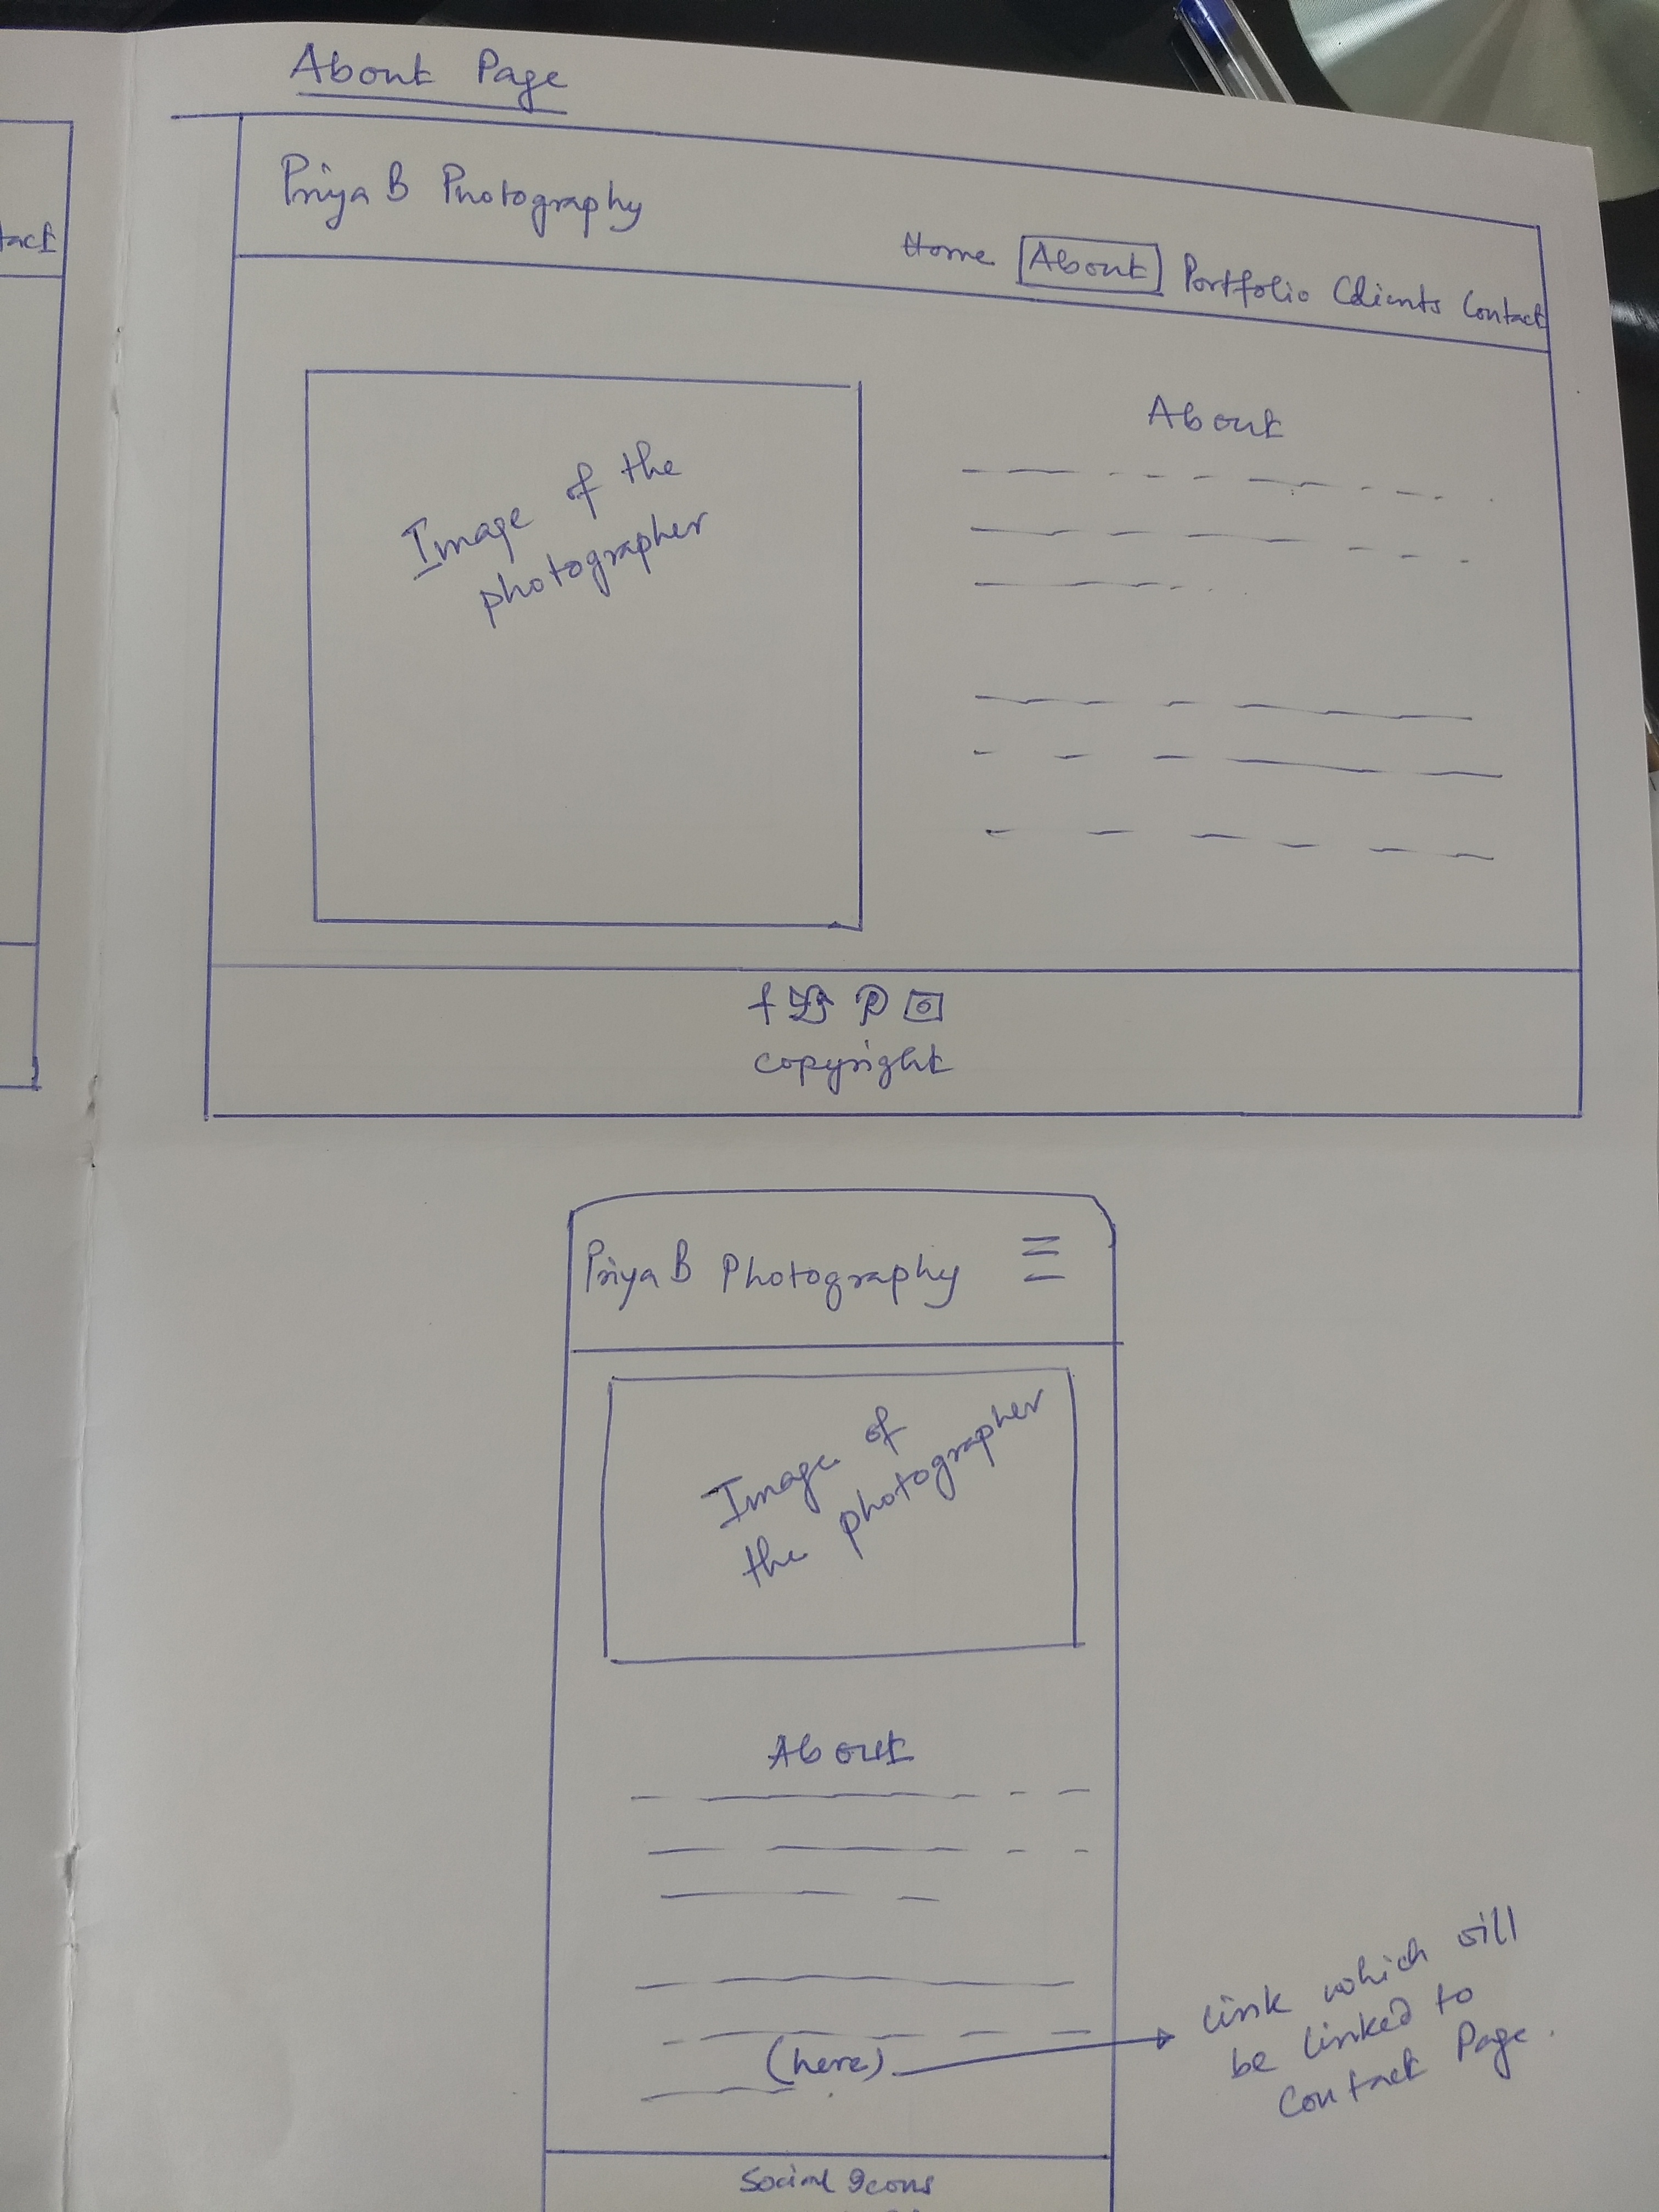 About Page
tact
Priya B Photography
Home About Portfolio Clients Contact
Image of the
photographer
About
f
copyright
Priya B Photography
Image of
the photographer
About
(here)
Link which will
be linked to
Contact Page.
Social Icons